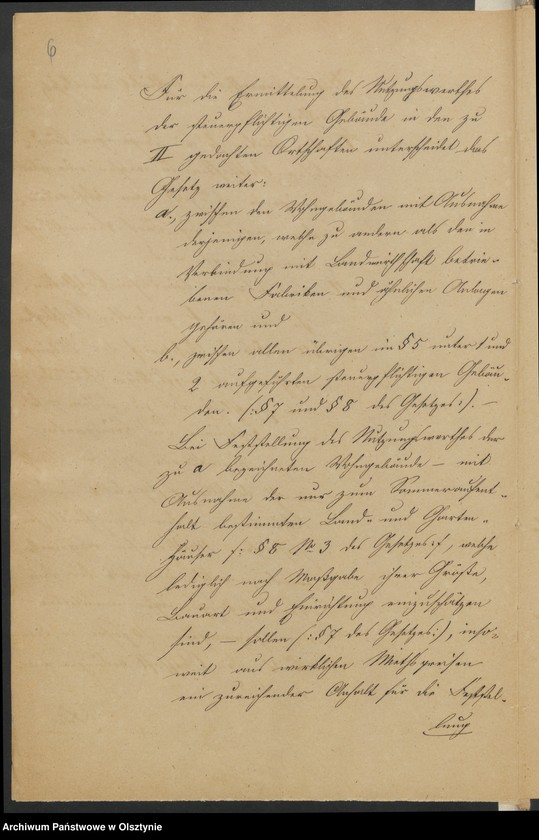 6
Für die Ermittelung des Nutzungswerthes
der steuerpflichtigen Gebäude in den zu
II gedachten Ortschaften unterscheidet das
Gesetz weiter:
a., zwischen den Wohngebäuden mit Ausnahme
derjenigen, welche zu andern als den in
Verbindung mit Landwirthschaft betrie-
benen Fabriken und ähnlichen Anlagen
gehören und
b., zwischen allen übrigen im § 5 unter 1 und
2 aufgeführten steuerpflichtigen Gebäu-
den. (: § 7 und § 8 des Gesetzes :). –
Bei Feststellung des Nutzungswerthes der
zu a bezeichneten Wohngebäude – mit
Ausnahme der nur zum Sommeraufent-
halt bestimmten Land- und Garten-
häuser (: § 8 № 3 des Gesetzes :), welche
lediglich nach Maßgabe ihrer Größe,
Bauart und Einrichtung einzuschätzen
sind, – sollen (: § 7 des Gesetzes :), inso-
weit aus wirklichen Miethspreisen
ein zureichender Anhalt für die Feststel-
lung
Archiwum Państwowe w Olsztynie